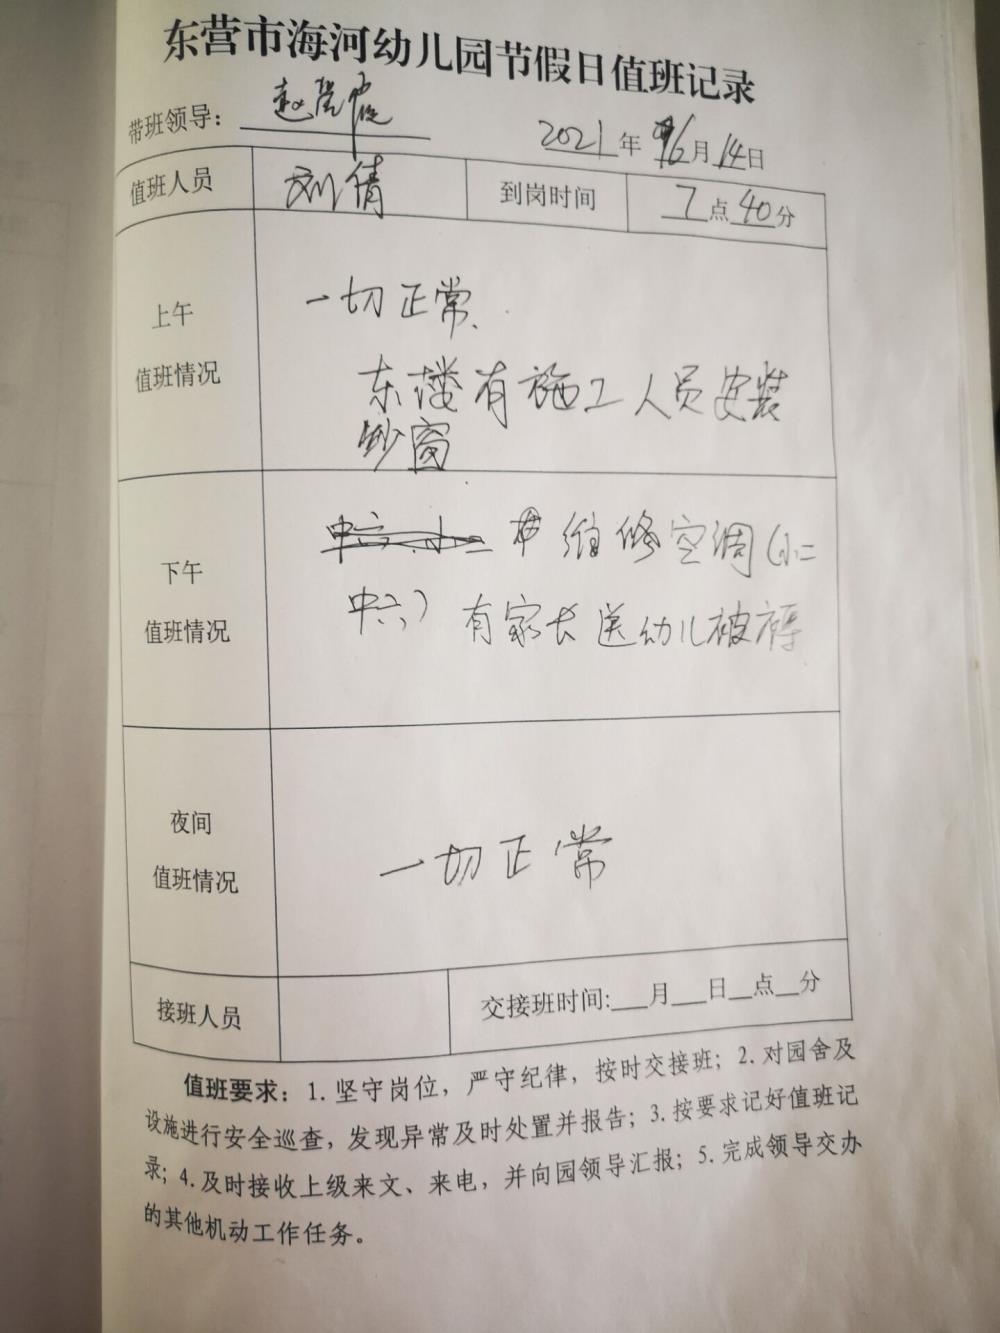 东营市海河幼儿园节假日值班记录
带班领导：赵
2021年6月14日
值班人员 刘倩 到岗时间 7点40分
上午
值班情况
一切正常、
东楼有施工人员安装
纱窗
下午
值班情况
维修空调（小二
中六） 有家长送幼儿被褥
夜间
值班情况
一切正常
接班人员 交接班时间:__月__日__点__分
值班要求：1.坚守岗位，严守纪律，按时交接班；2.对园舍及
设施进行安全巡查，发现异常及时处置并报告；3.按要求记好值班记
录；4.及时接收上级来文、来电，并向园领导汇报；5.完成领导交办
的其他机动工作任务。